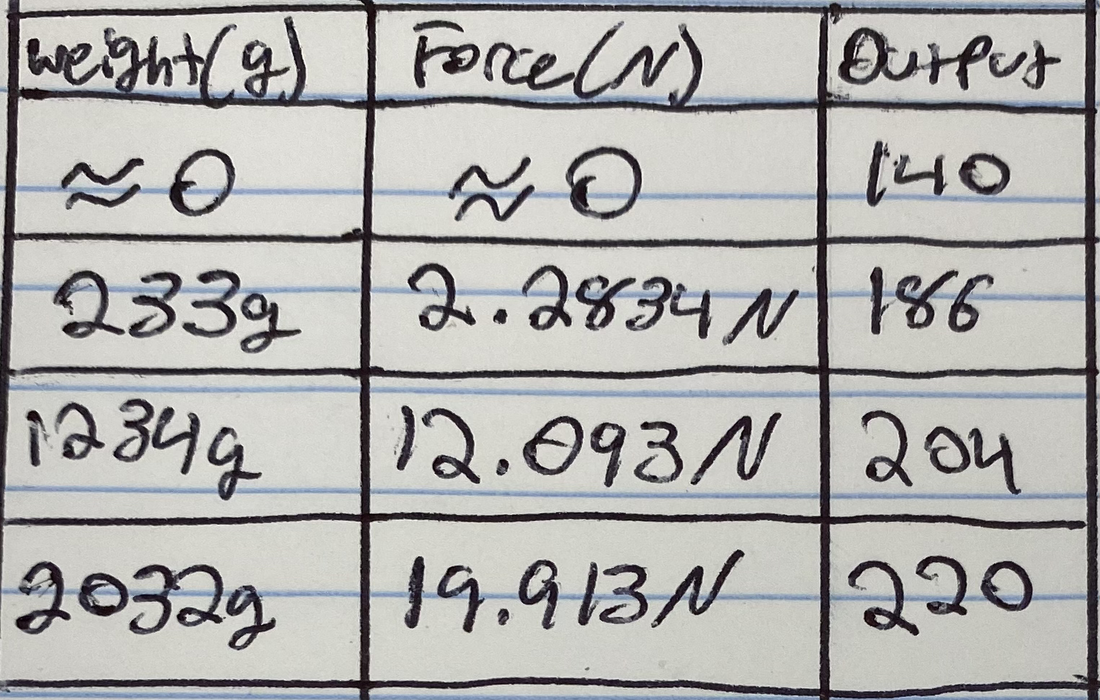 weight(g) Force(N) Output
≈ 0 ≈ 0 140
233g 2.2834N 186
1234g 12.093N 204
2032g 19.913N 220